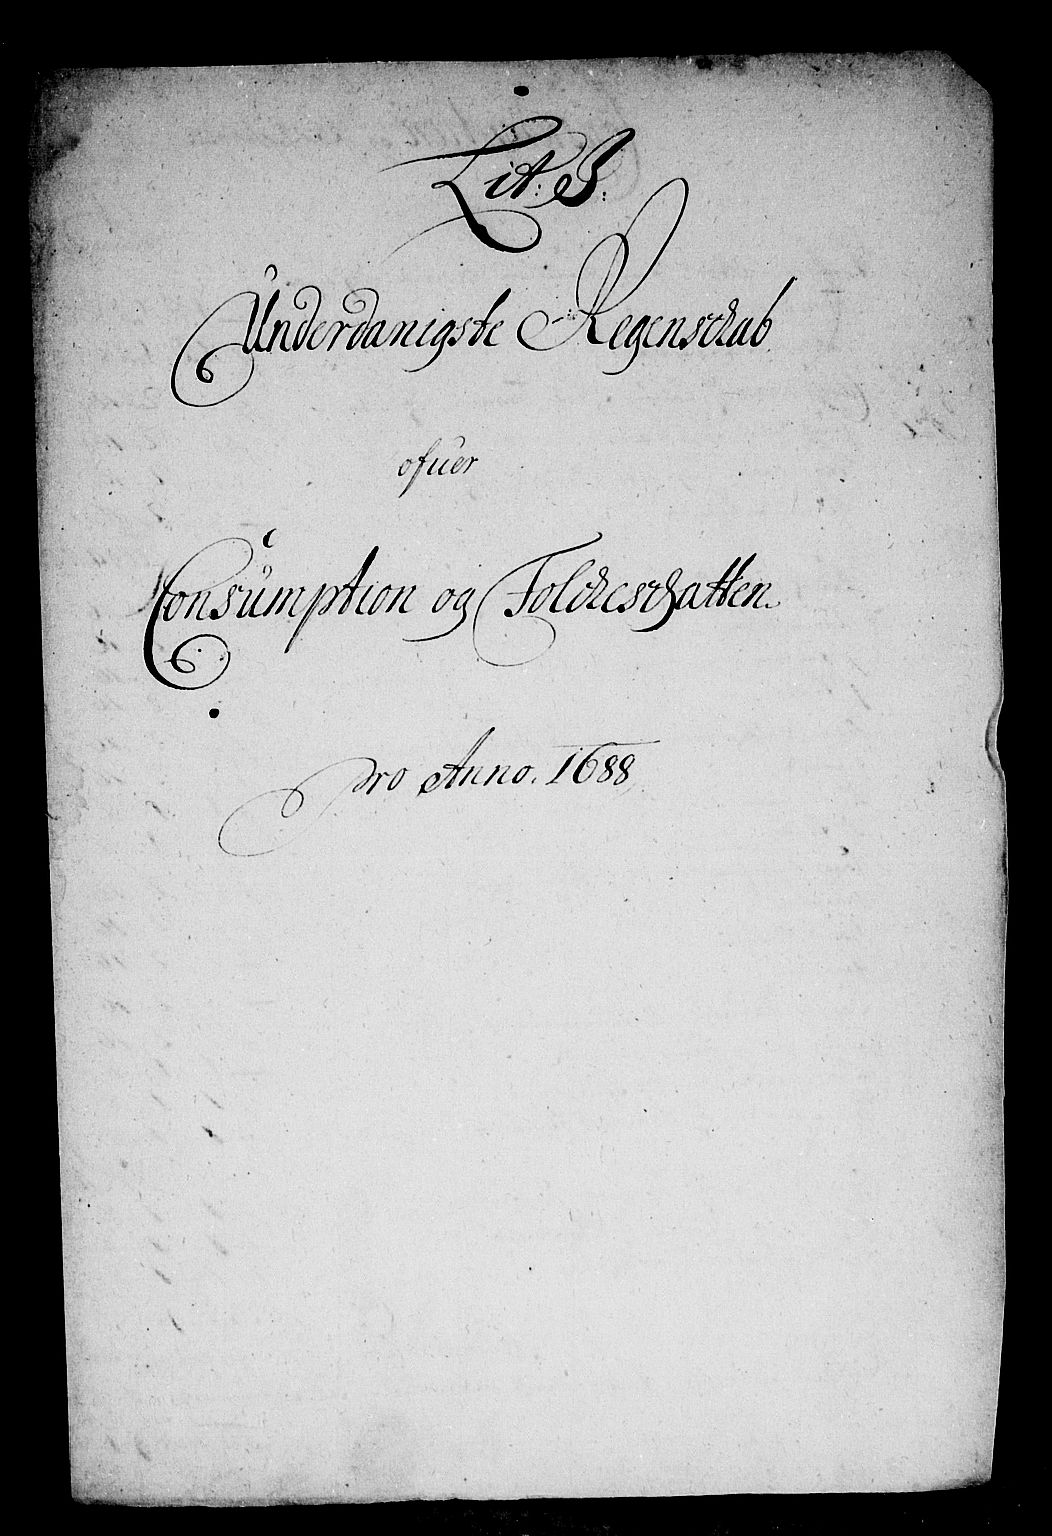 Lit: J:
Underdanigste Regenschab
ofuer
Consumption og Folckeschatten.
pro Anno. 1688